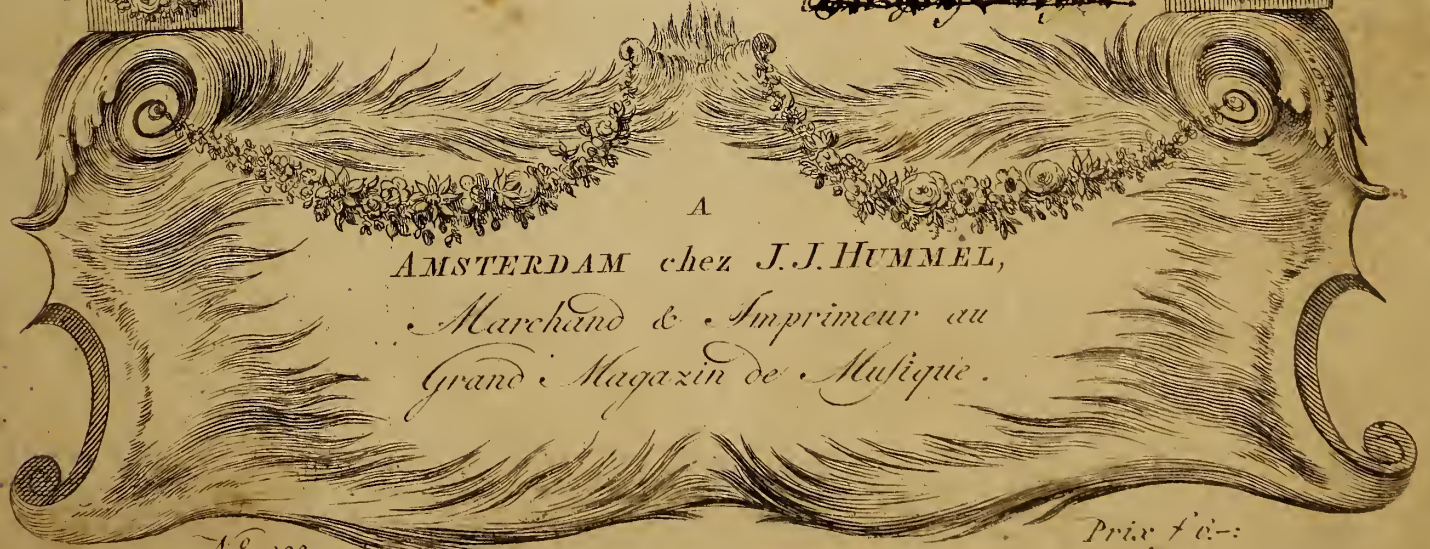 A
AMSTERDAM chez J. J. HUMMEL,
Marchand & Imprimeur au
Grand Magazin de Musique.
Prix f